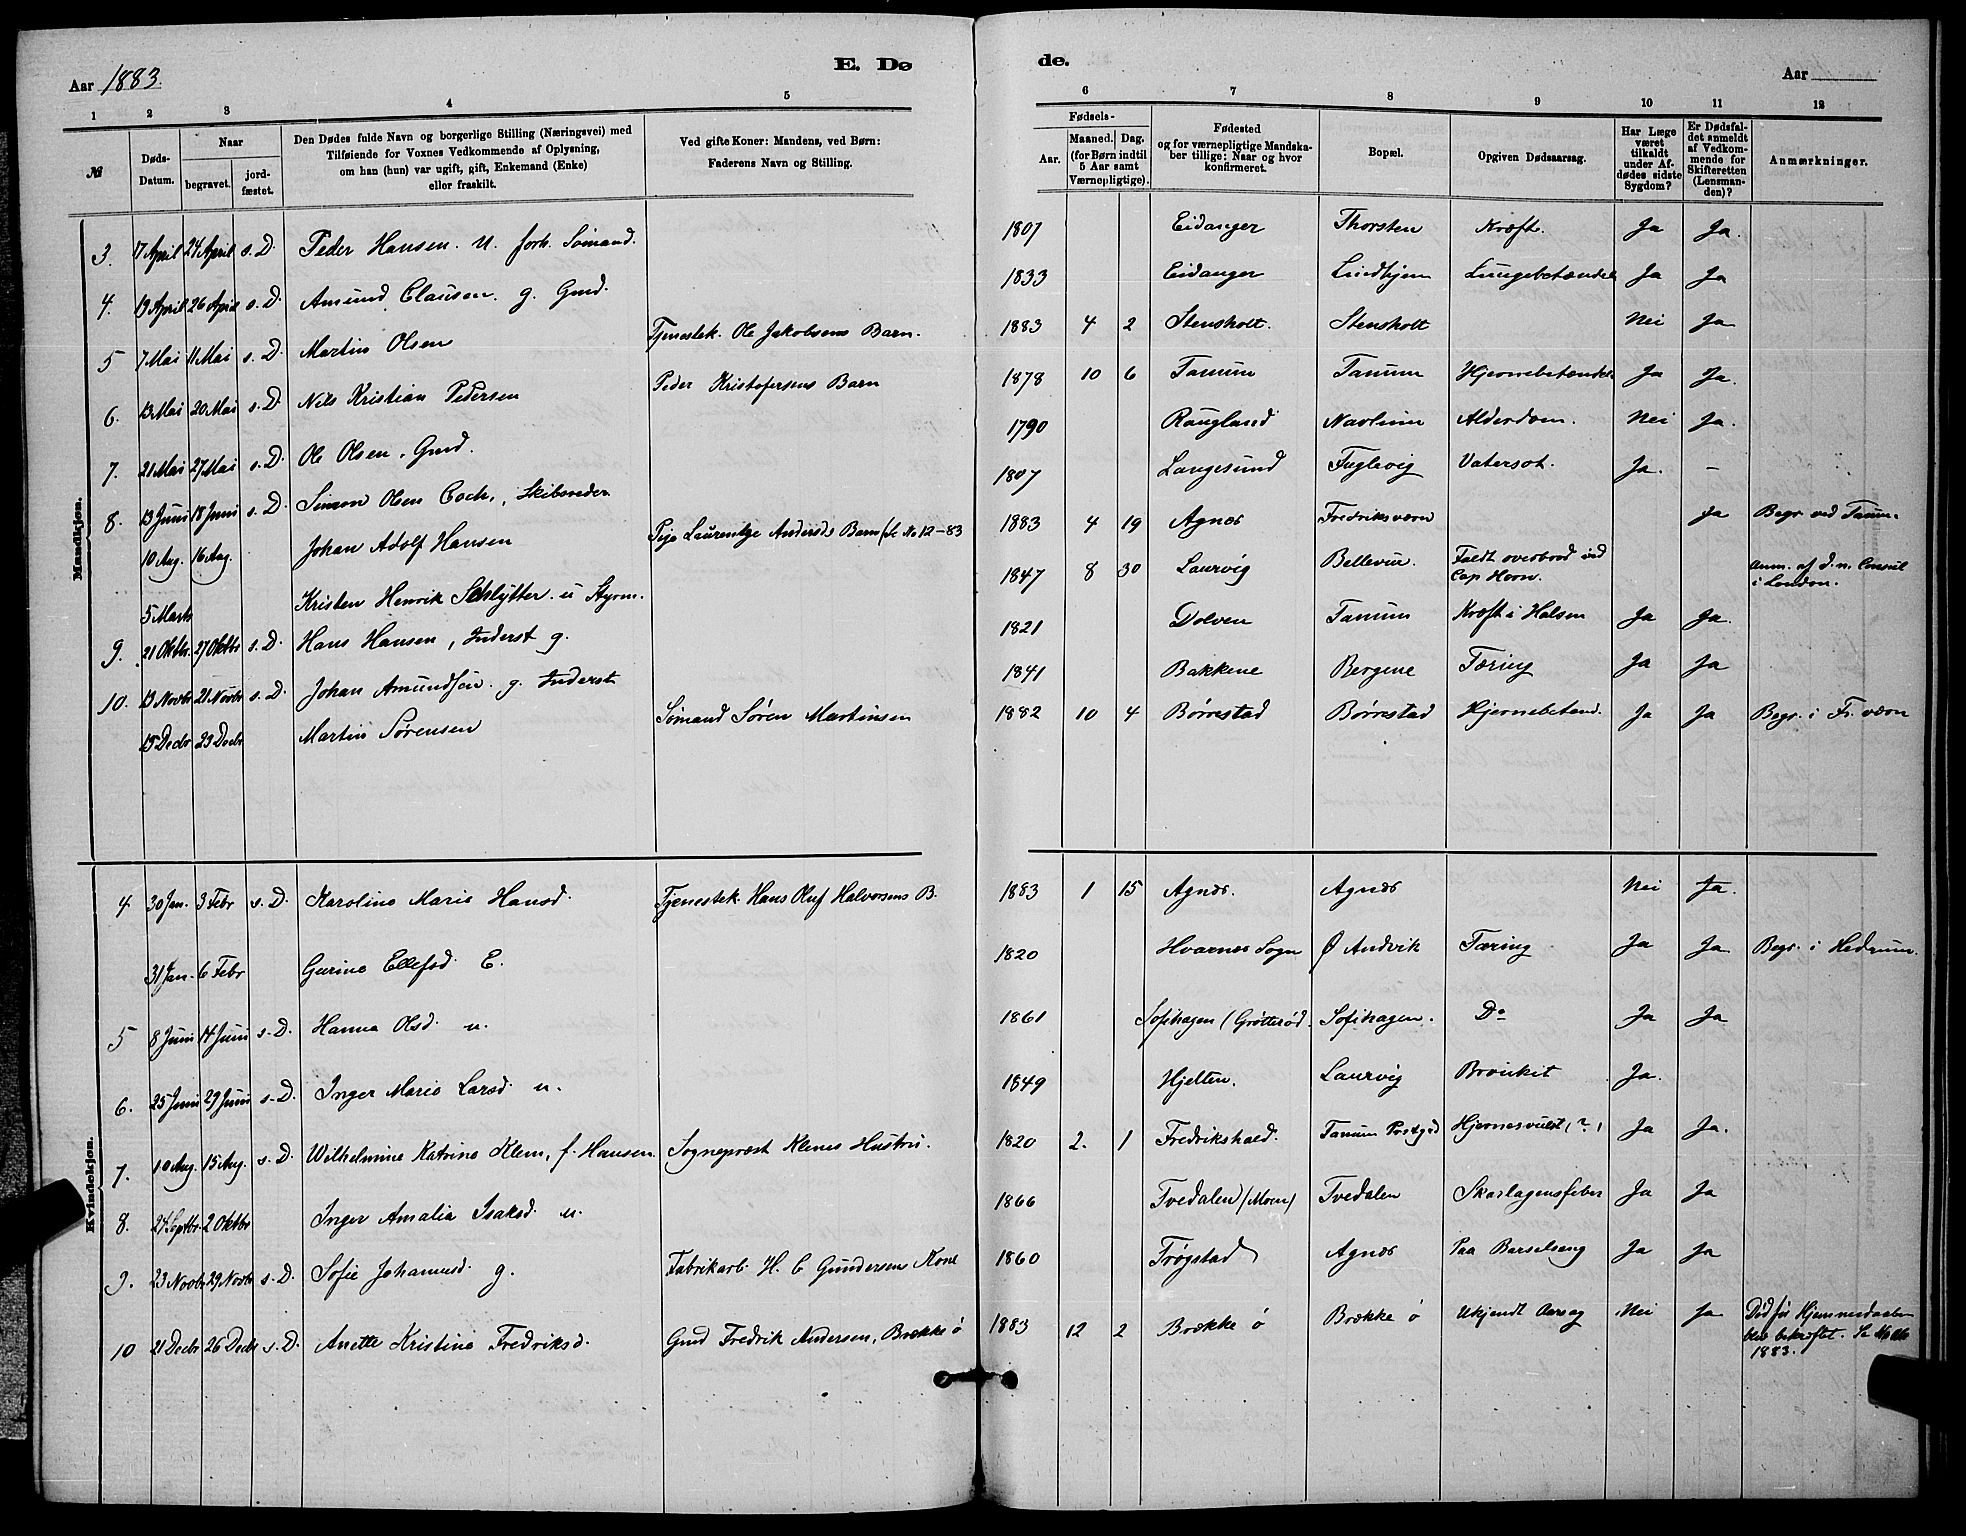 Aar 1883.
E. Dø
de.
Aar
1 2 3 4 5
6 7 8 9 10 11 12
№
Døds-Datum.
Naar
begravet.
jord-fæstet.
Den Dødes fulde Navn og borgerlige Stilling (Næringsvei) med
Tilføiende for Voxnes Vedkommende af Oplysning,
om han (hun) var ugift, gift, Enkemand (Enke)
eller fraskilt.
Ved gifte Koner: Mandens, ved Børn:
Faderens Navn og Stilling.
Fødsels-
Aar.
Maaned. Dag.
(for Børn indtil
5 Aar samt
Værnepligtige).
Fødested
og for værnepligtige Mandska-
ber tillige: Naar og hvor
konfirmeret.
Bopæl.
Opgiven Dødsaarsag.
Har Læge
været
tilkaldt
under Af-
dødes sidste
Sygdom?
Er Dødsfal-
det anmeldt
af Vedkom-
mende for
Skifteretten
(Lensman-
den)?
Anmærkninger.
Mandkjøn.
3. 17 April 24 April s. D. Peder Hansen. U. forh. Sømand. 1807 Eidanger Thorsten Kræft. Ja Ja.
4. 19 April 26 April s. D. Amund Clausen. g. Gmd. 1833 Eidanger Lindhjem Lungebetændels Ja Ja
5 7 Mai 11 Mai s. D. Martin Olsen Tjenestek. Ole Jakobsens Barn. 1883 4 2 Stensholt. Stensholt Nei Ja
6. 13 Mai 20 Mai s. D. Nils Kristian Pedersen Peder Kristofersens Barn 1878 10 6 Tanum Tanum Hjernebetændels Ja Ja.
7. 21 Mai 27 Mai s. D. Ole Olsen, Gmd. 1790 Raugland Navlum Alderdom. Nei Ja.
8. 13 Juni 18 Juni s. D. Simon Olsen Coch, Skibsreder. 1807 Langesund Fuglevig Vatersot. Ja. –
10 Aug. 16 Aug. Johan Adolf Hansen Pige Laurentze Andersds Barn (Se No 12-83 1883 4 19 Agnes Fredriksværn Ja Begr. ved Tanum.
5 Marts Kristen Henrik Schlytter. u Styrm. 1847 8 30 Laurvig Bellevue. Faldt overbord ved Cap Horn. Anm. af d. n. Consul i London.
9. 21 Oktbr. 27 Oktbr s. D. Hans Hansen, Inderst g. 1821 Dolven Tanum Kræft i Halsen Ja Ja.
10. 13 Novbr 21 Novbr s. D. Johan Amundsen. g. Inderst 1841 Bakkene Bergene Tæring Ja Ja
15 Decbr 23 Decbr Martin Sørensen Sømand Søren Martinsen 1882 10 4 Børrestad Børrestad Hjernebetænd. Ja Ja Begr. i Fr. værn
Kvindekjøn.
4 30 Jan. 3 Febr s. D. Karoline Marie Hansd. Tjenestek. Hans Oluf Halvorsens B. 1883 1 15 Agnes. Agnes Nei Ja.
31 Jan. 6 Febr Gurine Ellefsd. E. 1820 Hvarnes Sogn Ø Andvik Tæring Ja Ja Begr. i Hedrum.
5 8 Juni 14 Juni s. D. Hanna Olsd. u. 1861 Sofihagen (Grøttesød. Sofihagen. Do Ja Ja
6. 25 Juni 29 Juni s. D. Inger Marie Larsd. u. 1849 Hjelten. Laurvig Bronkit Ja.
7. 10 Aug. 15 Aug. s. D. Wilhelmine Katrine Klem, f. Hansen. Sognepræst Klems Hustru. 1820 2. 1 Fredrikshald. Tanum Prstgd Hjernesvulst (?) Ja Ja.
8. 24 Septbr. 2 Oktbr Inger Amalia Isaksd. u. 1866 Tvedalen (Moen) Tvedalen Skarlagensfeber Ja Ja
9. 23 Novbr 29 Novbr s. D. Sofie Johannesd. g. Fabrikarb. H. C Gundersens Kone 1860 Trøgstad Agnes Paa Barselseng Ja Ja
10 21 Decbr 26 Decbr s. D. Anette Kristine Fredriksd. Gmd Fredrik Andersen, Brække ø 1883 12 2 Brække ø Brække ø Ukjendt Aarsag Nei Ja Død før Hjemmedaaben
blev bekræftet. Se
1883.